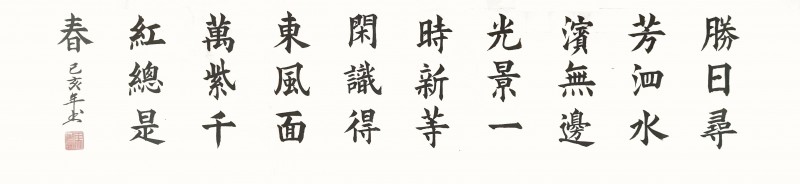 勝日尋
芳泗水
濱無邊
光景一
時新等
閑識得
東風面
萬紫千
紅總是
春
己亥年书